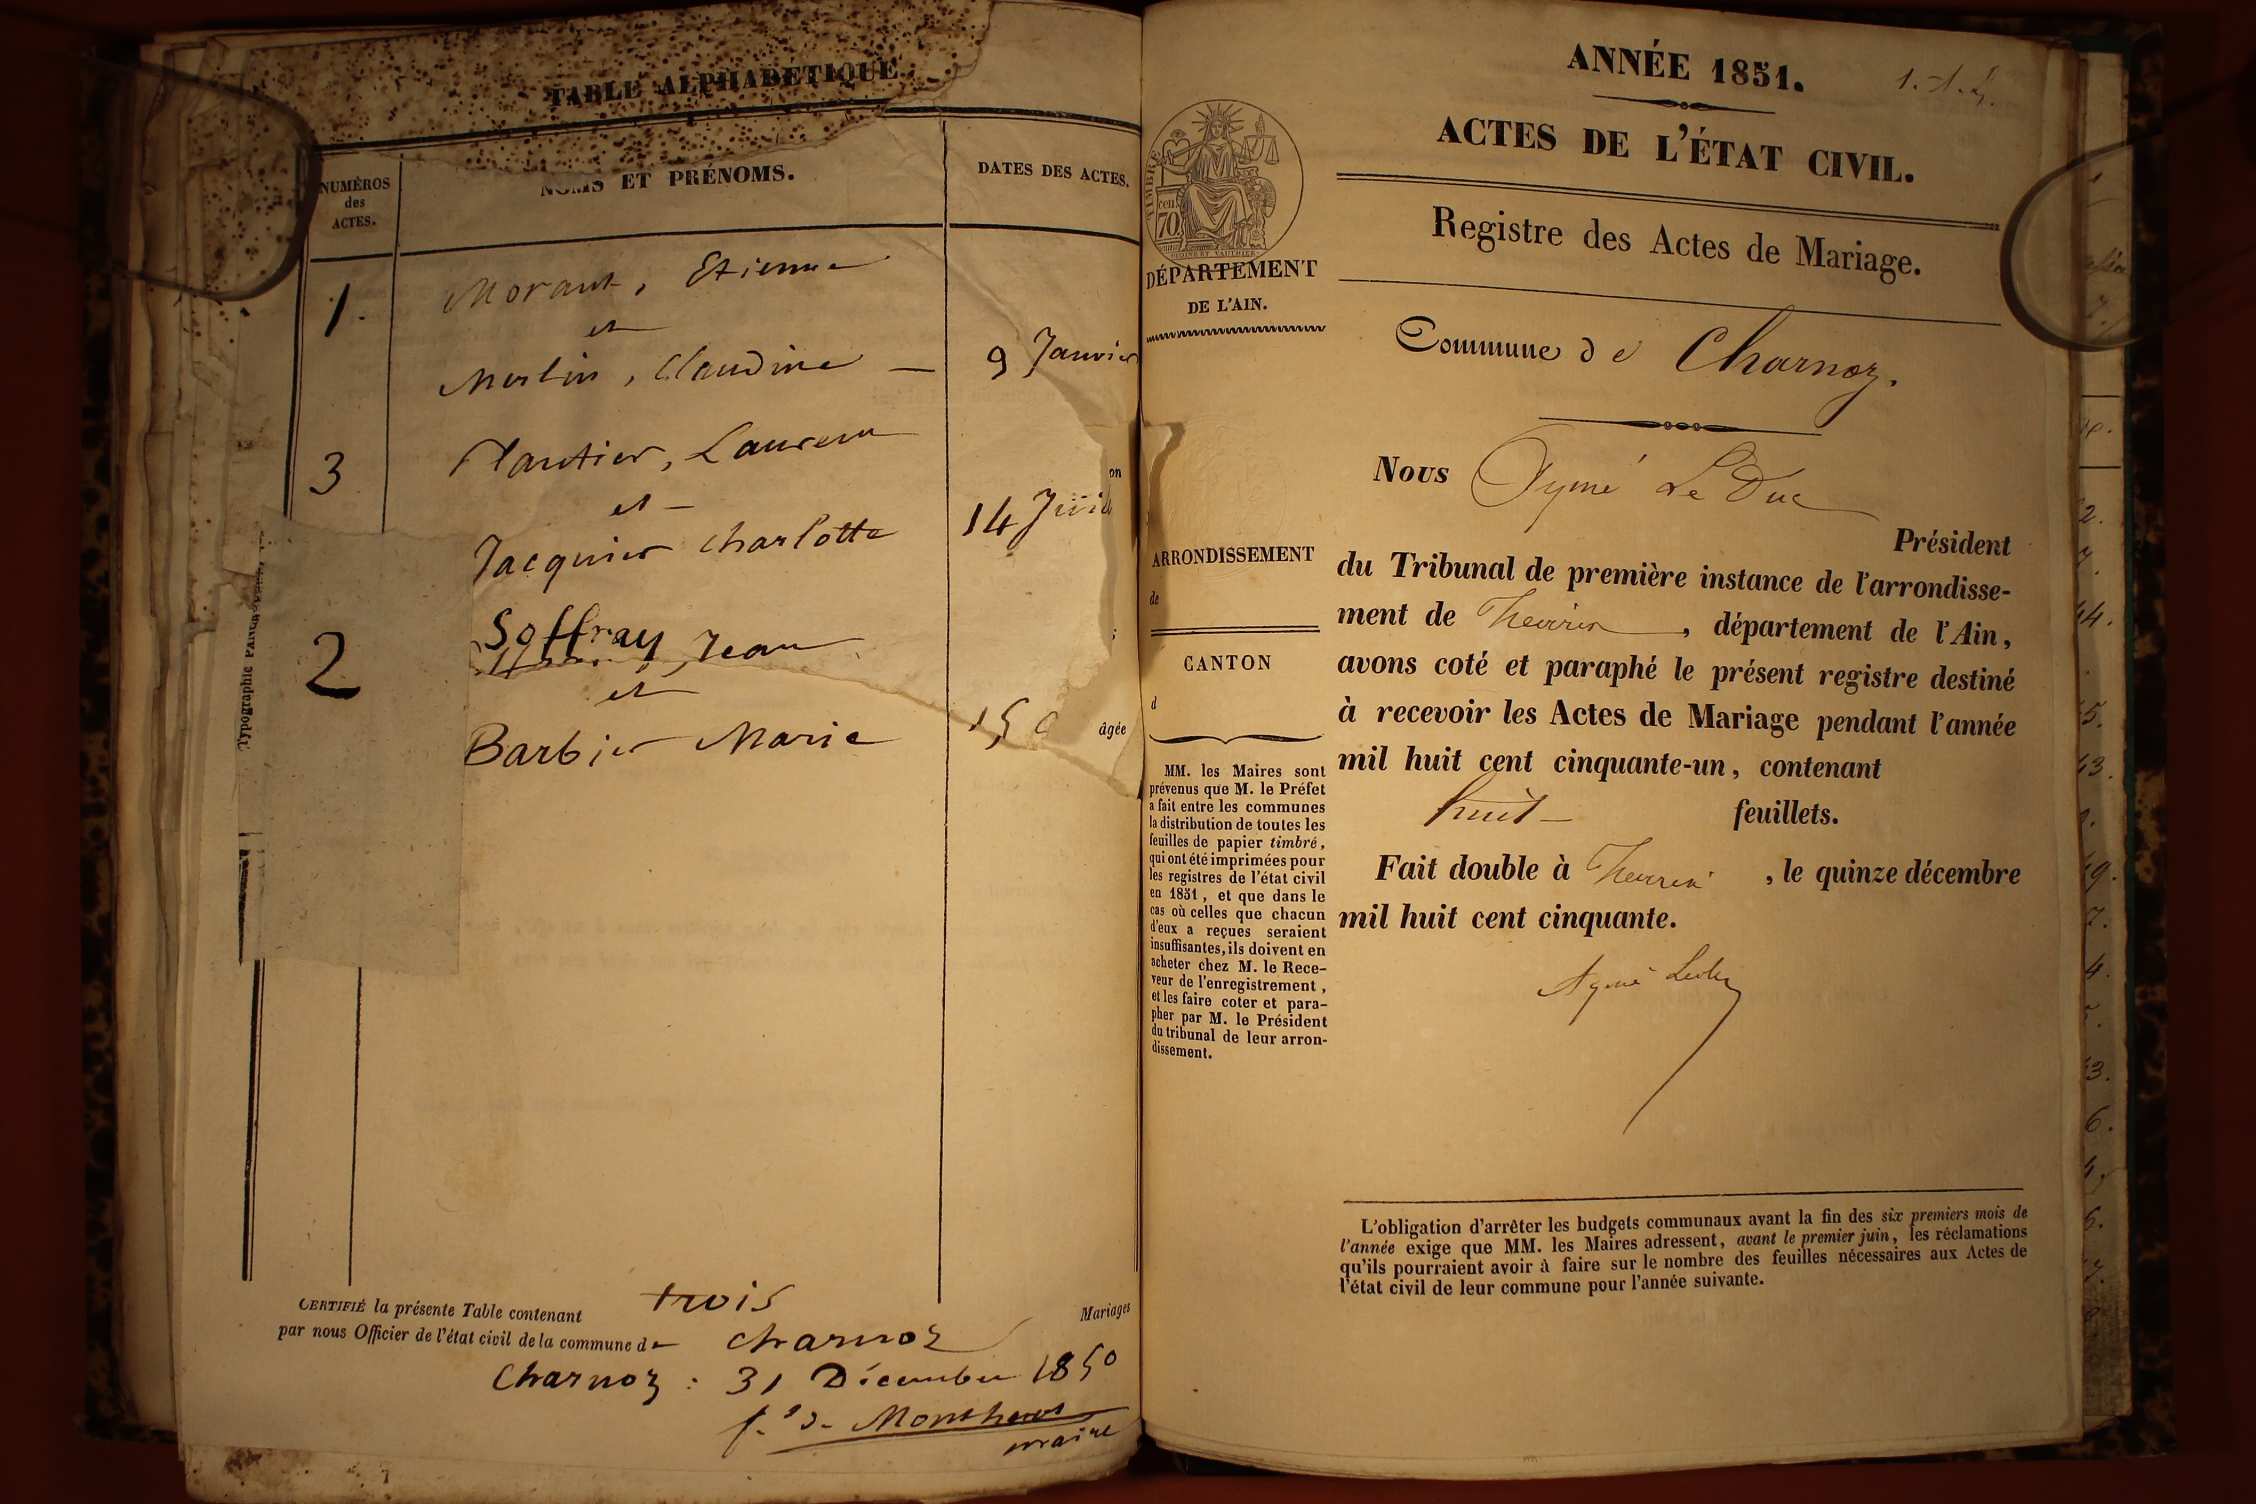 TABLE ALPHABÉTIQUE
NUMÉROS
des
ACTES.
NOMS ET PRÉNOMS.
DATES DES ACTES.
1.
Morant, Etienne
et
Merlin, Claudine — 9 Janvier
3
Plantier, Laurent
et —
Jacquier Charlotte 14
2
Soffray, Jean
et
Barbier Marie 15
âgée
Typographie
CERTIFIÉ la présente Table contenant trois Mariages
par nous Officier de l'état civil de la commune de Charnoz
Charnoz : 31 Décembre 1850
maire
ANNÉE 1851.
ACTES DE L'ÉTAT CIVIL.
Registre des Actes de Mariage.
TIMBRE
70
cen.
DÉPARTEMENT
DE L'AIN.
Commune de Charnoz.
Nous Aymé Le Duc
Président
du Tribunal de première instance de l'arrondisse-
ment de Trévoux, département de l'Ain,
avons coté et paraphé le présent registre destiné
à recevoir les Actes de Mariage pendant l'année
mil huit cent cinquante-un, contenant
huit — feuillets.
Fait double à Trévoux, le quinze décembre
mil huit cent cinquante.
ARRONDISSEMENT
de
CANTON
d
MM. les Maires sont
prévenus que M. le Préfet
a fait entre les communes
la distribution de toutes les
feuilles de papier timbré,
qui ont été imprimées pour
les registres de l'état civil
en 1851, et que dans le
cas où celles que chacun
d'eux a reçues seraient
insuffisantes, ils doivent en
acheter chez M. le Rece-
veur de l'enregistrement,
et les faire coter et para-
pher par M. le Président
du tribunal de leur arron-
dissement.
L'obligation d'arrêter les budgets communaux avant la fin des six premiers mois de
l'année exige que MM. les Maires adressent, avant le premier juin, les réclamations
qu'ils pourraient avoir à faire sur le nombre des feuilles nécessaires aux Actes de
l'état civil de leur commune pour l'année suivante.